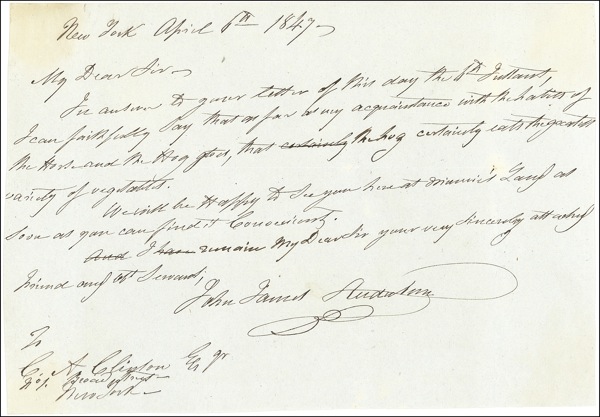 New York April 6th 1847
My Dear Sir
In answer to your Letter of this day the 6th Instant,
I can faithfully Say that as far as my acquaintance with the habits of
the Horse and the Hog goes, that certainly the hog certainly eats the greatest
variety of vegetables.
We will be Happy to See you here at Minnie's Land as
Soon as you can find it Convenient.
And I have remain My Dear Sir your very Sincerely attached
friend and Servant,
John James Audubon
To
C. A. Clinton Esqr
New York